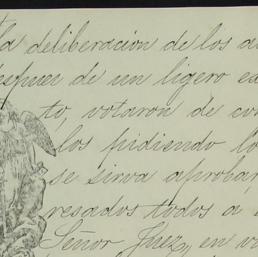 la deliberacion de los
despues de un ligero
to, votaron de
los pidiendo
se sirva aprobar
resados todos a
Señor Juez, en